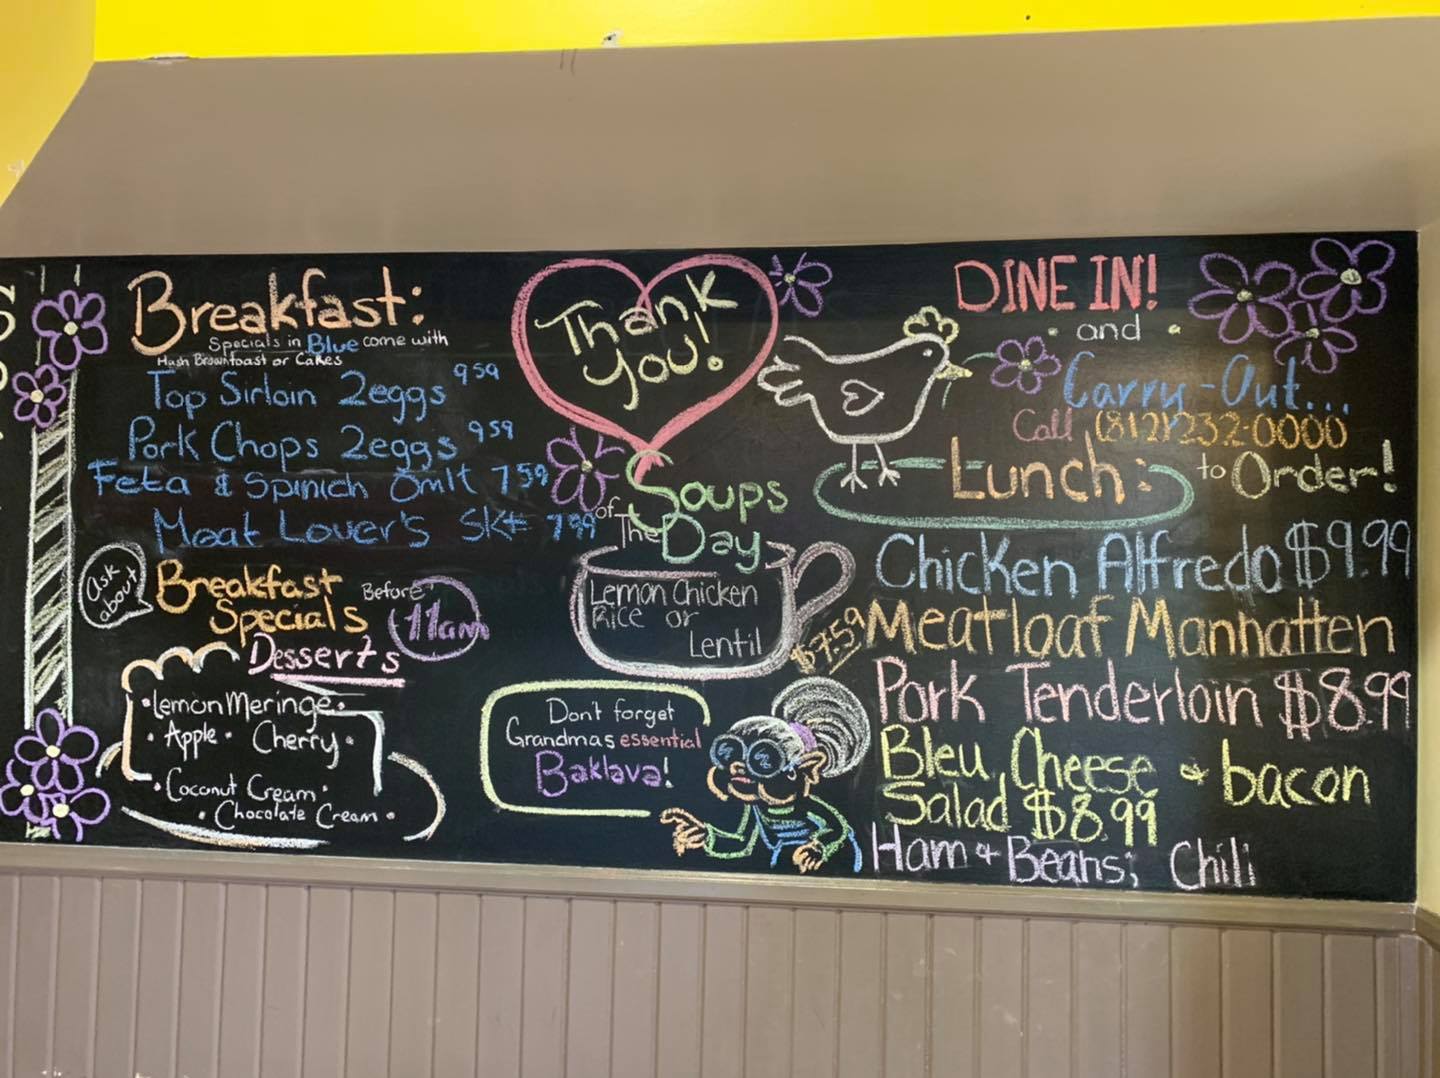 Breakfast:
Specials in Blue come with
Hash Brown toast or Cakes
Top Sirloin 2eggs 9 59
Pork Chops 2eggs 9 59
Feta & Spinich Omlt 7 59
Meat Lover's Sk+ 7 99
Ask about
Breakfast
Specials
Before
11am
Desserts
• Lemon Meringe •
• Apple • Cherry •
• Coconut Cream •
• Chocolate Cream •
Thank
You!
Soups
of The Day
Lemon Chicken
Rice or
Lentil
Don't forget
Grandmas essential
Baklava!
DINE IN!
• and •
Carry-Out...
Call (812)232-0000
to Order!
Lunch:
Chicken Alfredo $9.99
$7.59 Meatloaf Manhatten
Pork Tenderloin $8.99
Bleu Cheese & bacon
Salad $8.99
Ham & Beans; Chili